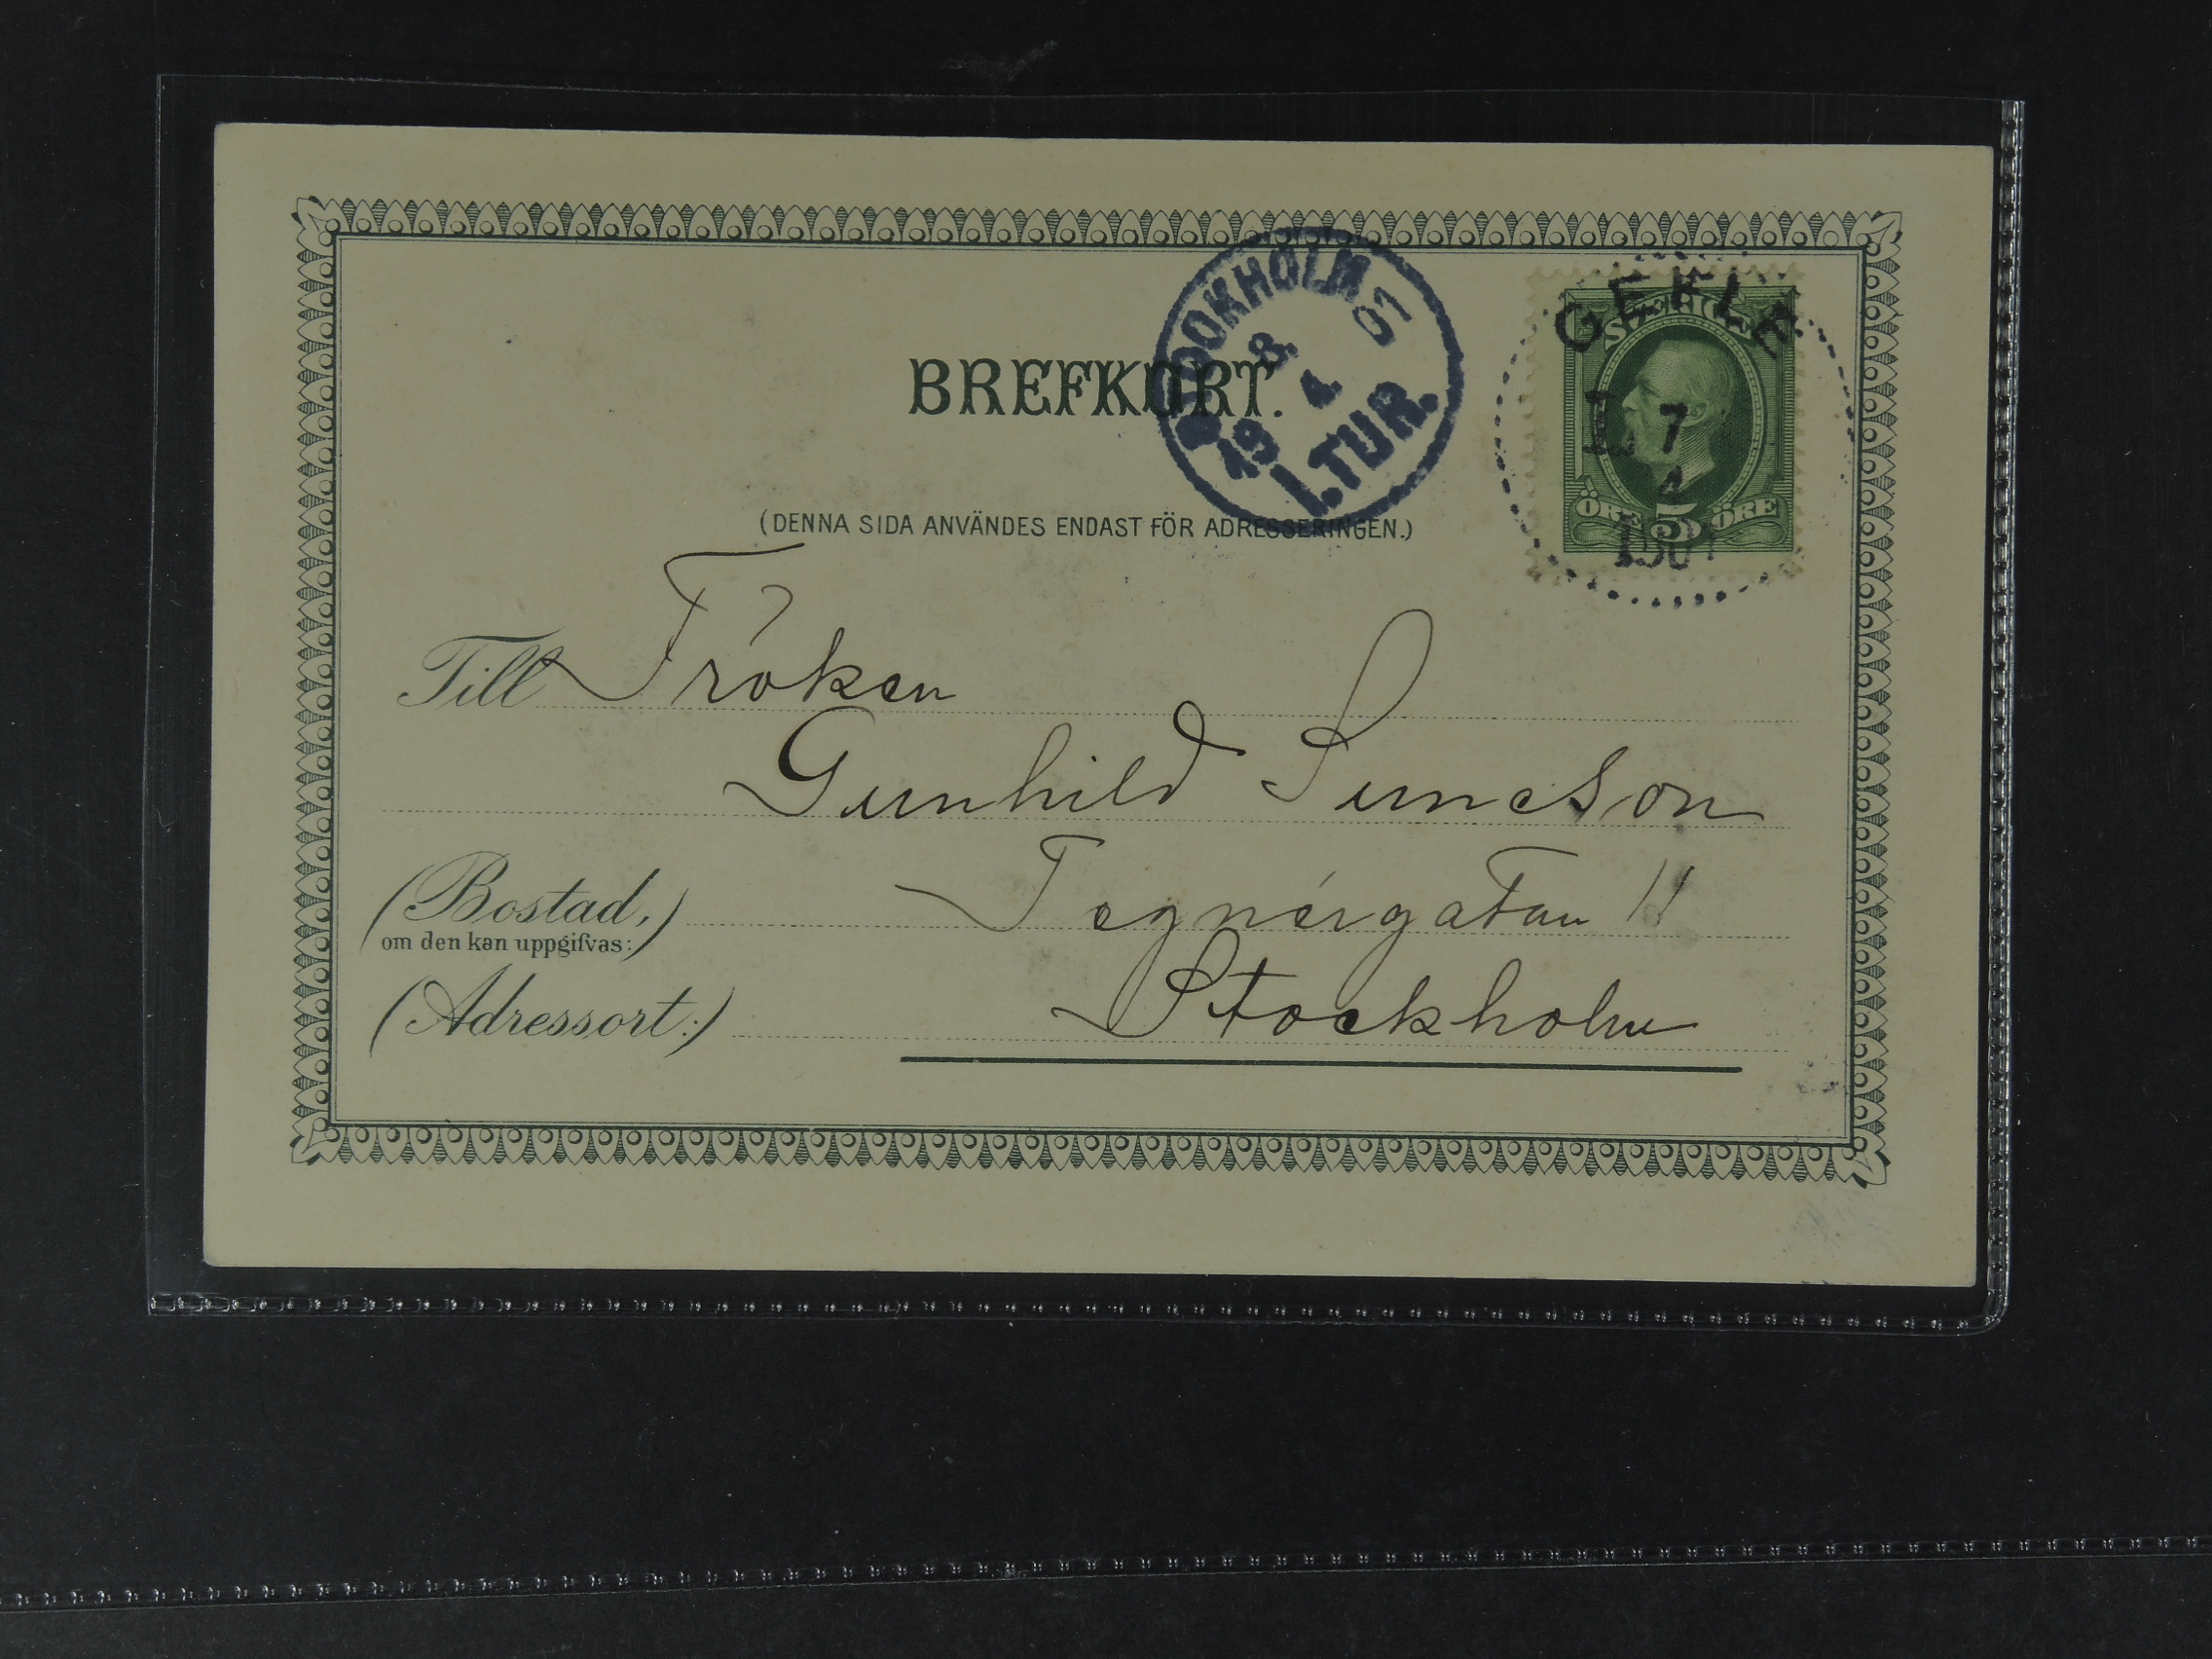 STOCKHOLM
8. 4.
19 01
1.TUR.
GEFLE
7
4
1901
SVERIGE
ÖRE 5 ÖRE
BREFKORT.
(DENNA SIDA ANVÄNDES ENDAST FÖR ADRESSERINGEN.)
Till Fröken
Gunhild Suneson
(Bostad,) Tegnérgatan 11
om den kan uppgifvas:
(Adressort:) Stockholm